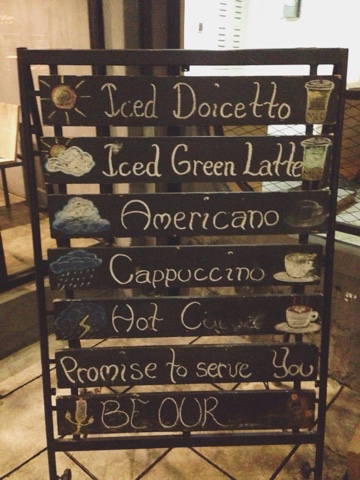 Iced Doicetto
Iced Green Latte
Americano
Cappuccino
Hot
Promise to serve You
BE OUR